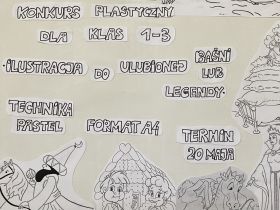 KONKURS PLASTYCZNY
DLA KLAS 1-3
·ILUSTRACJA DO ULUBIONEJ BAŚNI
LUB
LEGENDY·
TECHNIKA
PASTEL
FORMAT A4
TERMIN
20 MAJA